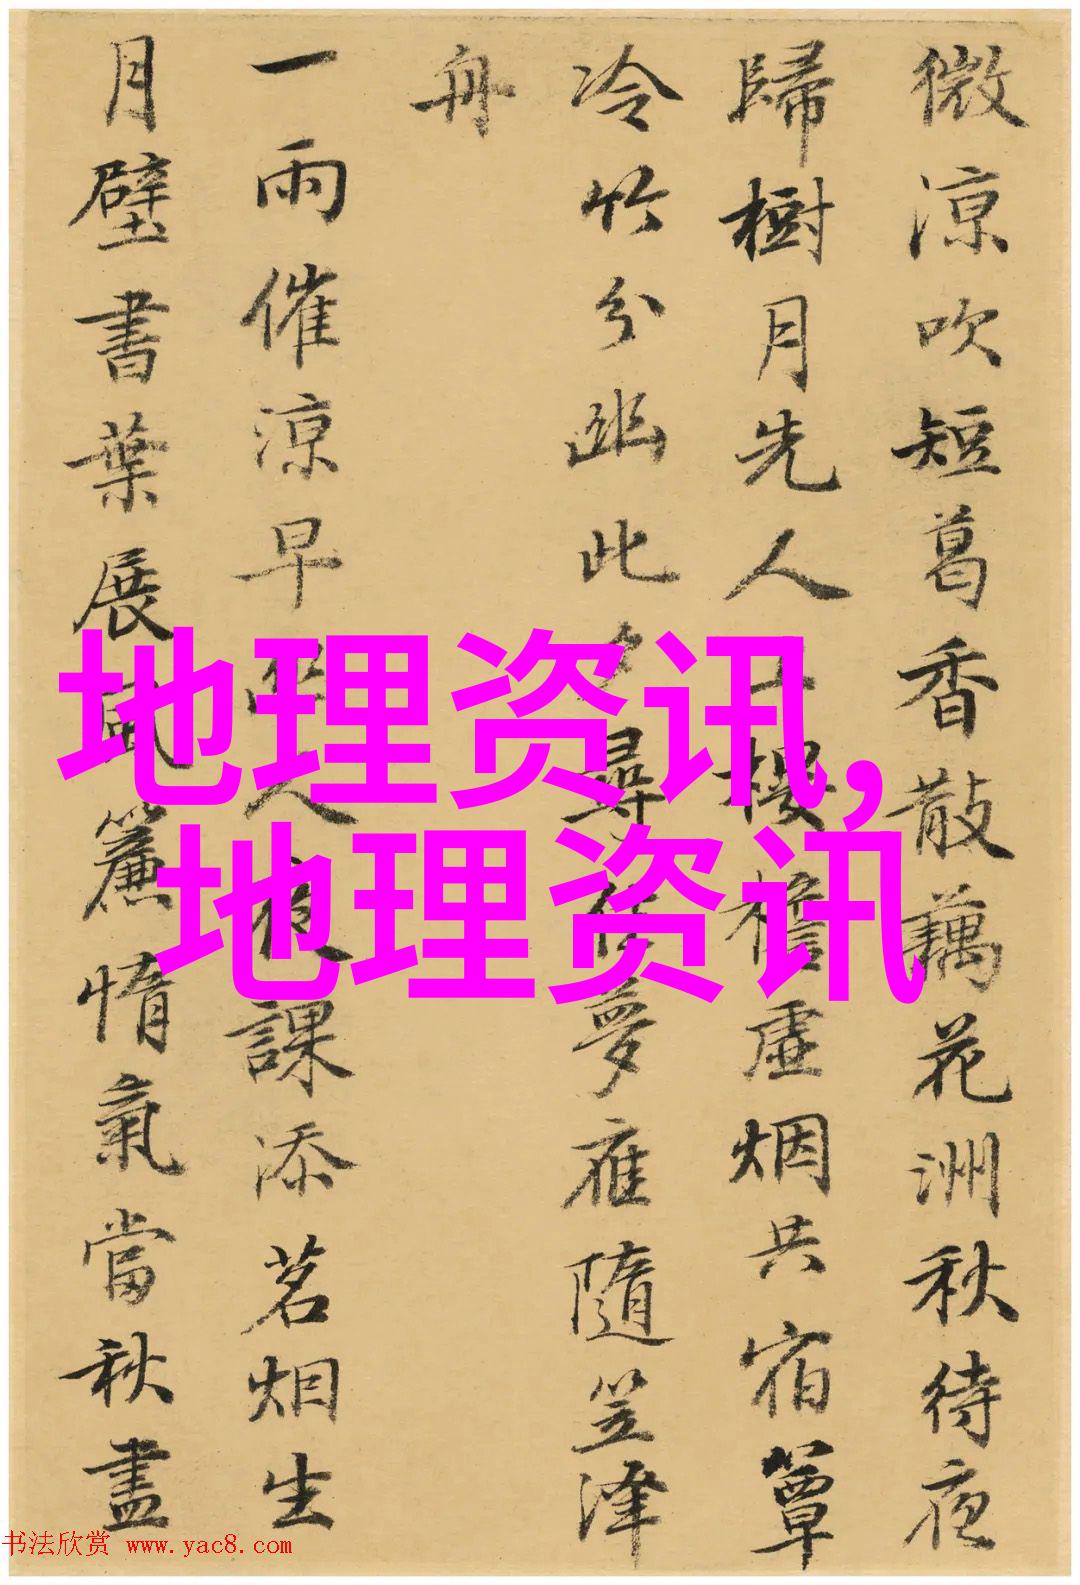 微涼吹短葛香散藕花洲秋待夜
歸樹月先人上樓檐虛烟共宿簟
冷竹分幽此夕尋佳夢應隨笠澤
舟
一雨催涼早幽人夜課添茗烟生
月壁書葉展風簾惰氣當秋盡
地理资讯,
地理资讯
书法欣赏 www.yac8.com